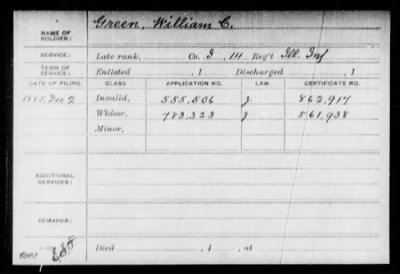 NAME OF SOLDIER: Green, William C.
SERVICE: Late rank, Co. I, 14 Reg't Ill. Inf
TERM OF SERVICE: Enlisted , 1 Discharged , 1
DATE OF FILING. CLASS. APPLICATION NO. LAW. CERTIFICATE NO.
1885, Dec 2 Invalid, 555,506 J 862,917
Widow, 783,323 J 561,938
Minor,
ADDITIONAL SERVICES:
REMARKS:
Died , 1 , at